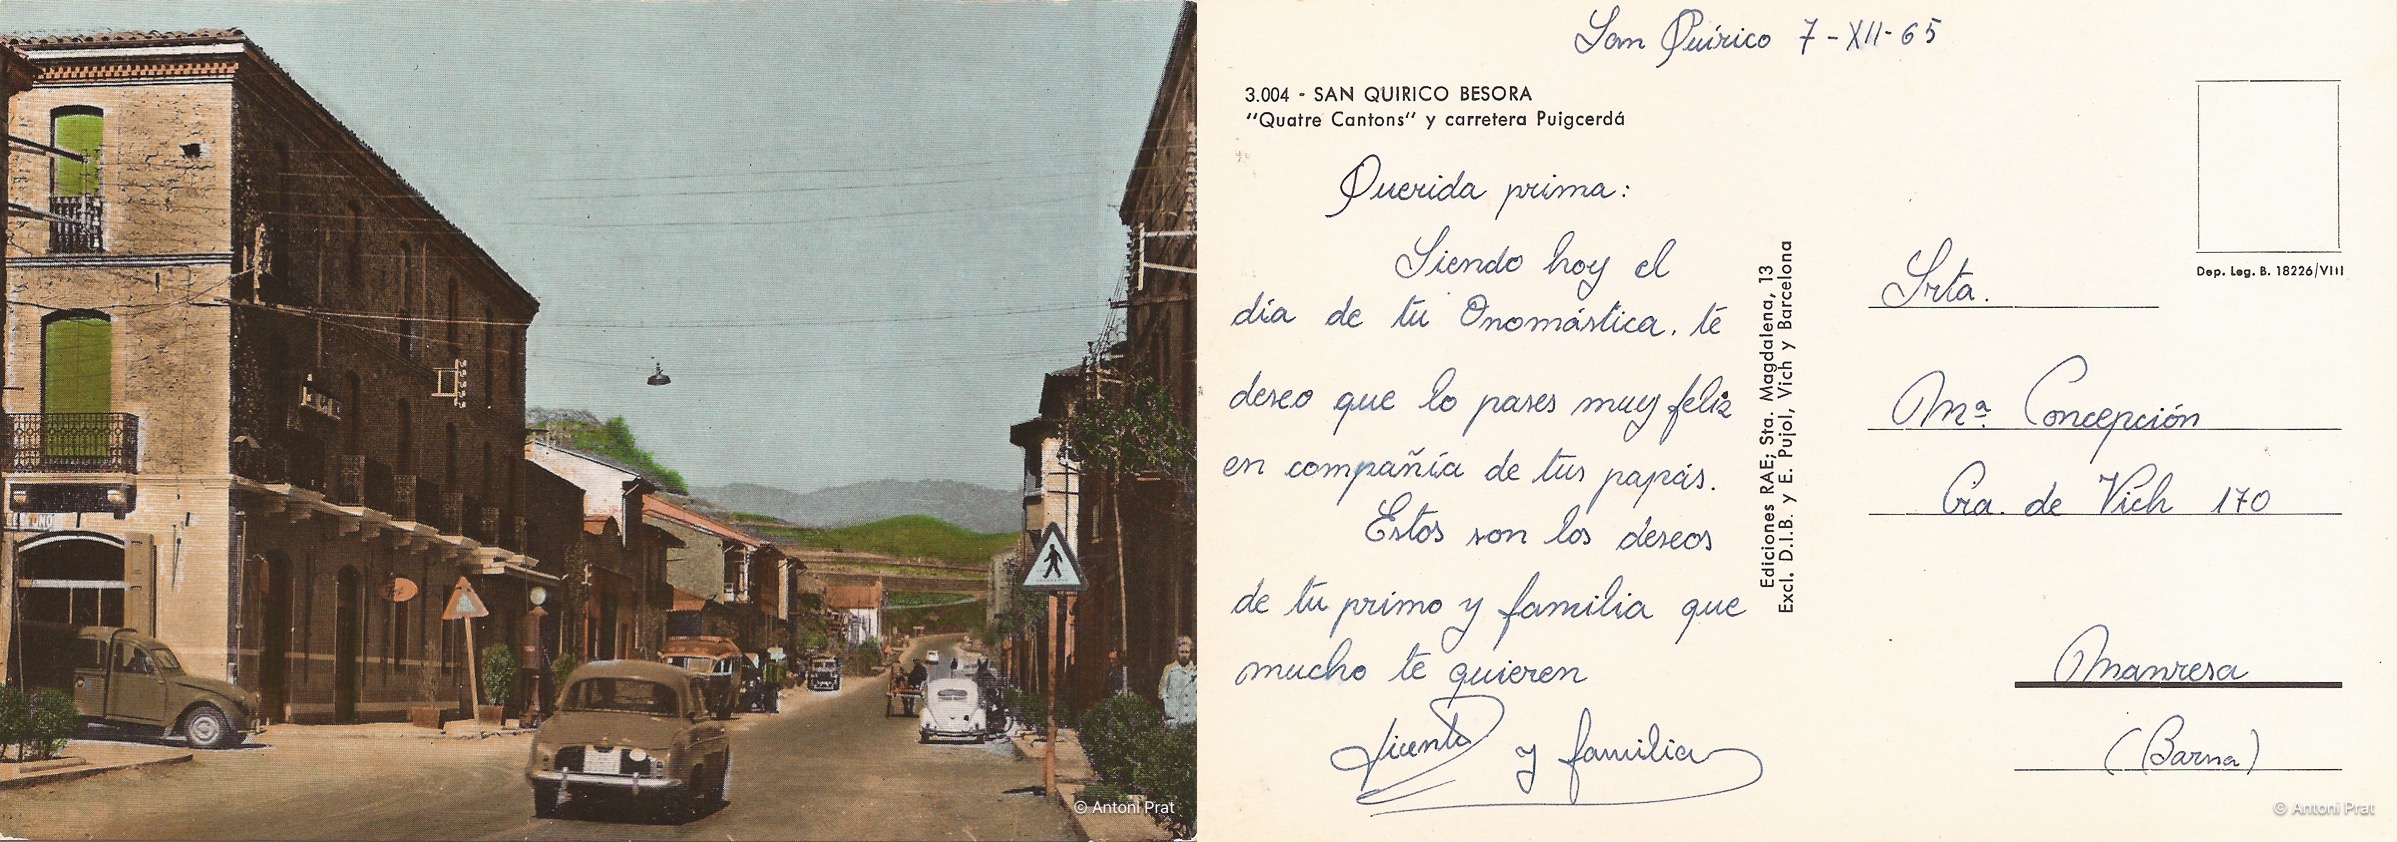 © Antoni Prat
San Quirico 7-XII-65
3.004 - SAN QUIRICO BESORA
"Quatre Cantons" y carretera Puigcerdá
Querida prima:
Siendo hoy el
día de tu Onomástica, te
deseo que lo pases muy feliz
en compañía de tus papás.
Estos son los deseos
de tu primo y familia que
mucho te quieren
Vicente y familia
Ediciones RAE; Sta. Magdalena, 13
Excl. D.I.B. y E. Pujol, Vich y Barcelona
Dep. Leg. B. 18226/VIII
Srta.
Mª Concepción
Cra. de Vich 170
Manresa
(Barna)
© Antoni Prat